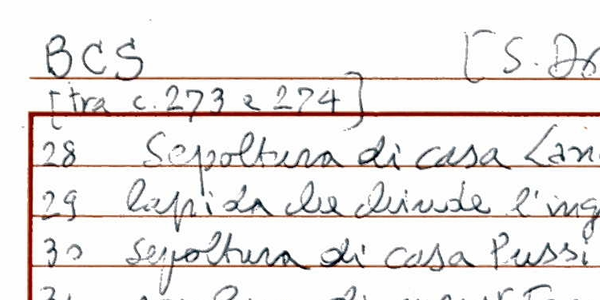 BCS [S. Do
[tra c. 273 e 274]
28 Sepoltura di casa Lan
29 lapida che chiude l'ing
30 sepoltura di casa Pussi
31